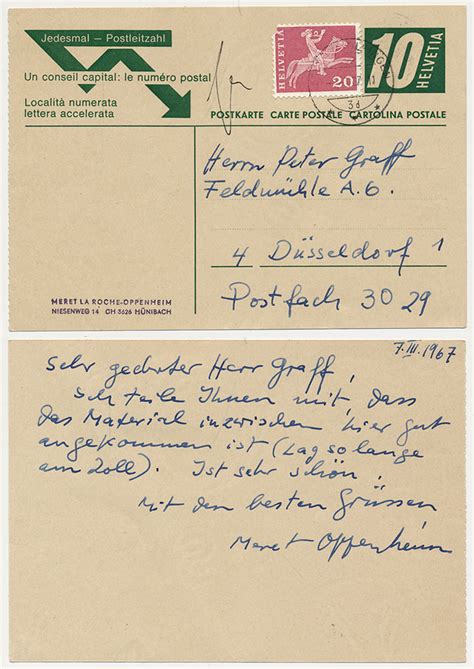 Jedesmal – Postleitzahl
Un conseil capital: le numéro postal
Località numerata
lettera accelerata
HELVETIA
20
10
HELVETIA
3d
POSTKARTE CARTE POSTALE CARTOLINA POSTALE
Herrn Peter Graff
Feldmühle A.G.
4 Düsseldorf 1
Postfach 30 29
MERET LA ROCHE-OPPENHEIM
NIESENWEG 14 CH 3626 HÜNIBACH
7.III.1967
Sehr geehrter Herr Graff,
Ich teile Ihnen mit, dass
das Material inzwischen hier gut
angekommen ist (Lag so lange
am Zoll). Ist sehr schön!
Mit den besten Grüssen
Meret Oppenheim